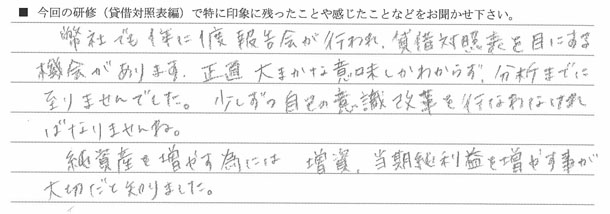 ■ 今回の研修（貸借対照表編）で特に印象に残ったことや感じたことなどをお聞かせ下さい。
弊社でも年に1度報告会が行われ、貸借対照表を目にする
機会があります。正直大まかな意味しかわからず、分析までに
至りませんでした。少しずつ自己の意識改革を行なわなけれ
ばなりませんね。
純資産を増やす為には 増資、当期純利益を増やす事が
大切だと知りました。